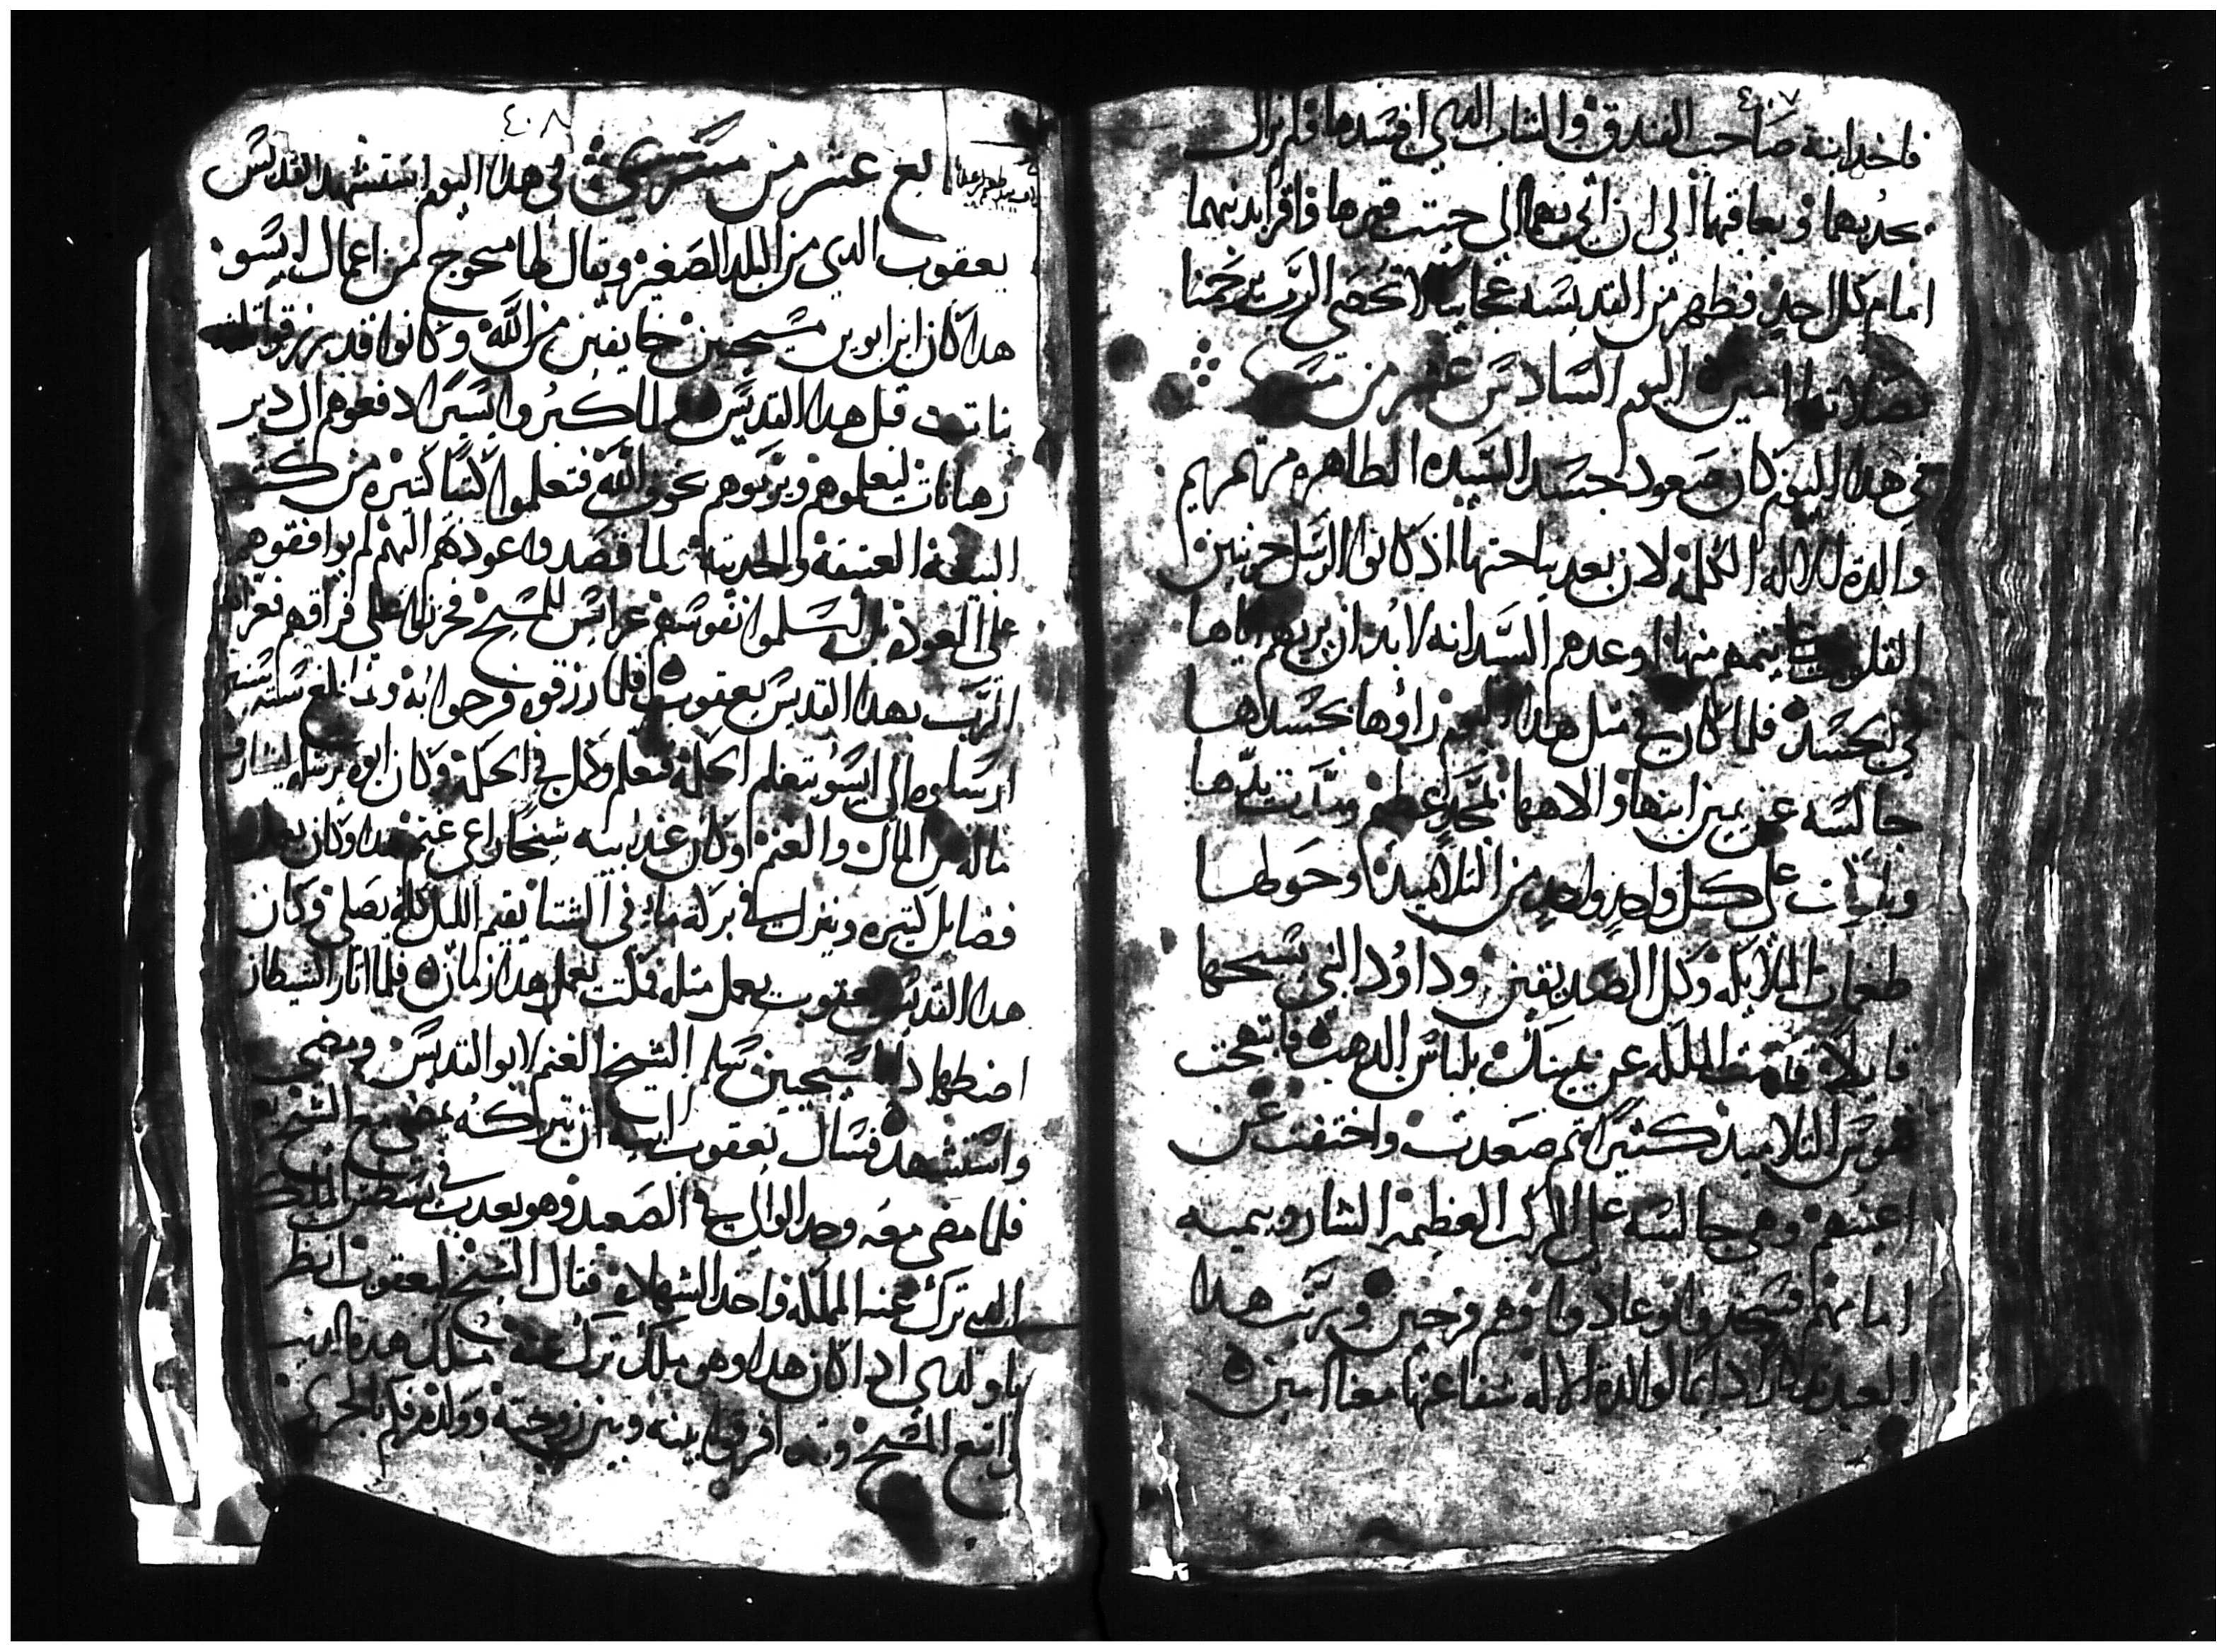 ٤٠٧
فاخد ابنة صاحب الفندق والشاب الدي افسدها ولم يزال
يعدبهما ويعاقبهما الى ان اتي بهما الى حيت قبرها فاقر بدنبهما
امام كل احد وظهر من القديسه عجايب لا تحصى الرب يرحمنا
بصلاتها امين اليوم السادس عشر من مسرى
في هدا اليوم كان صعود جسد السيده الطاهره مرتمريم
والدة الاله الكلمة لان بعد نياحتها اد كانوا الرسل حزينين
القلوب عليها اوعدهم السيد انه لابد ان يريهم اياها
في الجسد فلما كان في متل هدا اليوم راوها بجسدها
جالسه عن يمين ابنها والاهها بمجد عظيم ومدت يدها
وباركت على كل واحد واحد من التلاميد وحولها
طغمات الملايكه وكل الصديقين وداود النبي يسبحها
قايلا قامت الملكه عن يمينك بلباس الدهب فابتهجت
نفوس التلاميد كتيرا تم صعدت واختفت عن
اعينهم وهي جالسه على المركب العظيمه الشاروبيميه
امامهم فسجدوا وعادوا وهم فرحين ورتب هدا
العيد تدكارا دايما لوالدة الاله شفاعتها معنا امين
٤٠٨
بع عشر من مسرى في هدا اليوم استشهد القديس
يعقوب الدي من البلد الصغيره ويقال لها منجوج من اعمال ابسو
هدا كان ابن ابوين مسيحيين خايفين من الله وكانوا قد رزقوا تلت
بنات قبل هدا القديس ولما كبروا ايسرا دفعوهم الى دير
رهبانات ليعلموهم ويربوهم بخوف الله فتعلموا كتبا كتيره من كتب
البيعة العتيقه والحديته ولما قصدوا عودهم اليهم لم يوافقوهم
على العوده بل سلموا نفوسهم عرايس للمسيح فحزنوا على فراقهم فعزاهم
الرب بهدا القديس يعقوب فلما رزقوه فرحوا به ولما بلغ سته سنين
ارسلوه الى ابسو يتعلم الحكمه فتعلم وكمل في الحكمة وكان ابوه يرسله ليشارف
ماله من المال والغنم وكان عند ابيه شيخا راعي غنمه وكان يعمل
فضايل كتيره وينزل في بركة ماء في الشتا يقيم الليل كله يصلي وكان
هدا القديس يعقوب يعمل متله فمكت يعمل هدا زمانا فلما اتار الشيطان
اضطهاد المسيحيين سلم الشيخ الغنم لابو القديس ومضى
واستشهد فسال يعقوب ابيه ان يتركه يمضي مع الشيخ
فلما مضى معه وجد الوالي في الصعيد وهو يعدب في يسطس الملك
الدي ترك عنه المملكه واخد الشهاده فقال الشيخ ليعقوب انظر
يا ولدي ادا كان هدا وهو ملك ترك عنه ملك هده الدنيا
واتبع المسيح وقد افرقوا بينه وبين زوجته وولده فكم بالحري